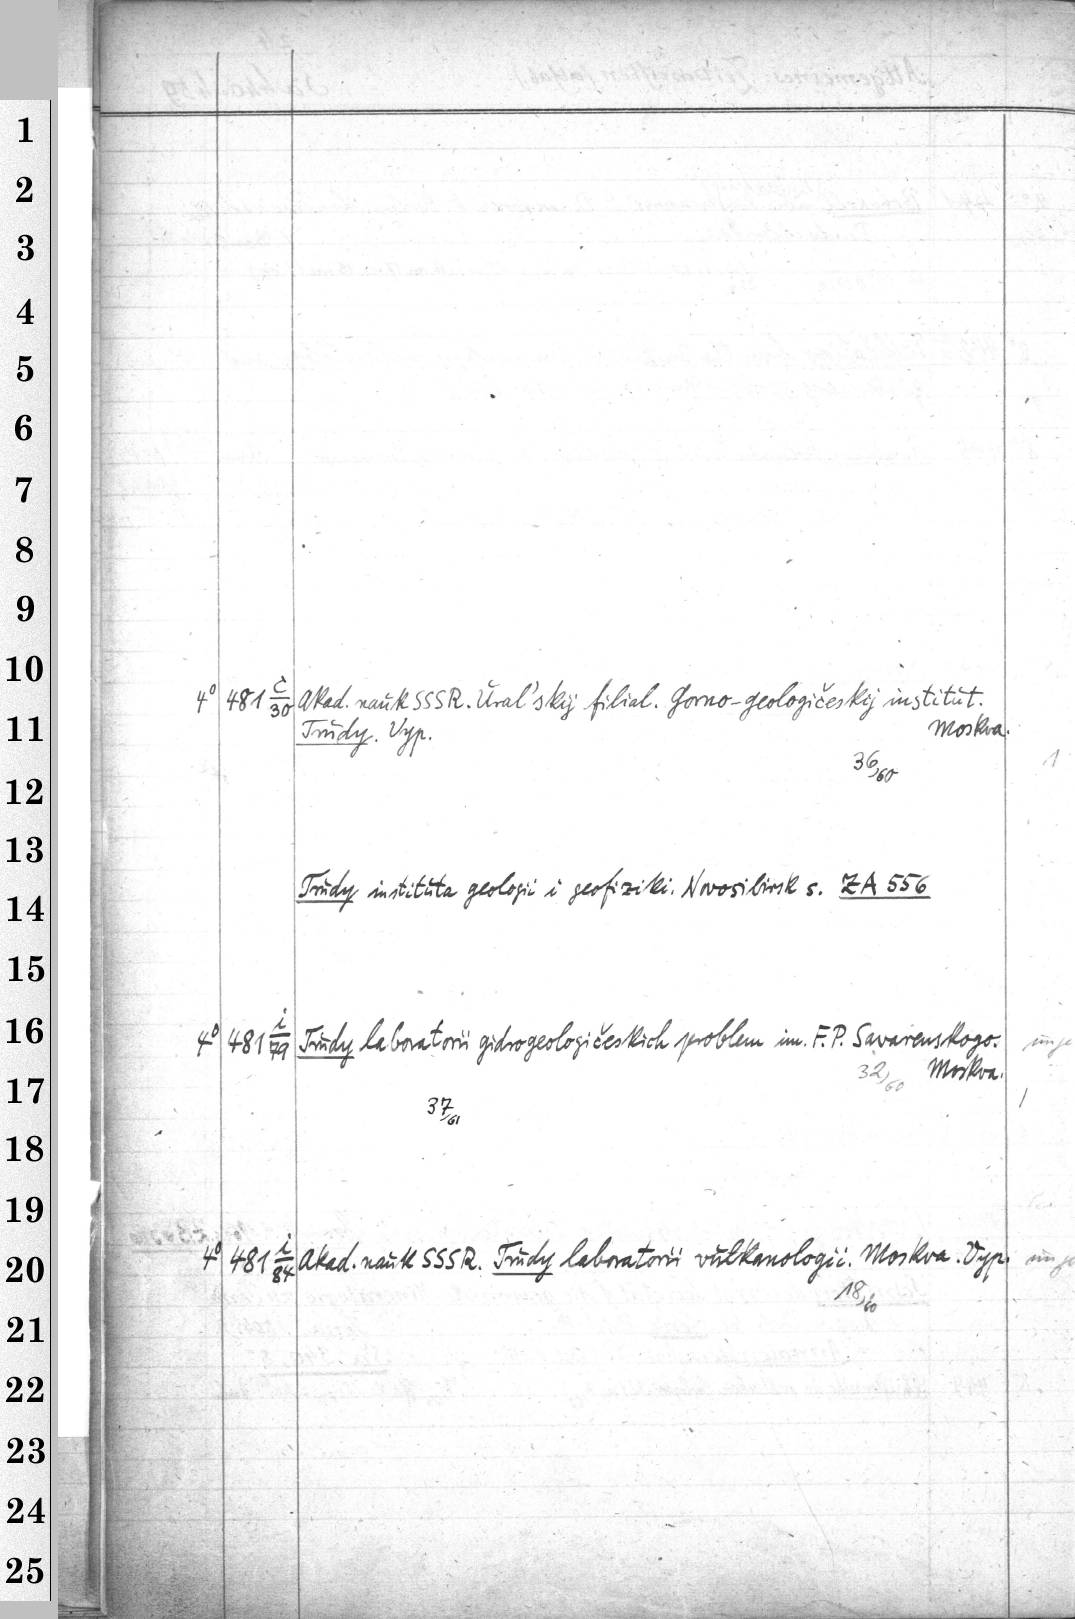 1
2
3
4
5
6
7
8
9
10
4° 481 č/30 Akad. nauk SSSR. Ural'skij filial. Gorno-geologičeskij institut.
11 Trudy. Vyp. Moskva.
36/60 1
12
13
Trudy instituta geologii i geofiziki. Novosibirsk s. ZA 556
14
15
16
4° 481 i/79 Trudy laboratorii gidrogeologičeskich problem im. F.P. Savarenskogo.
32/60 Moskva.
17
37/61
18
19
20 4° 481 i/84 Akad. nauk SSSR. Trudy laboratorii vulkanologii. Moskva. Vyp.
18/60
21
22
23
24
25